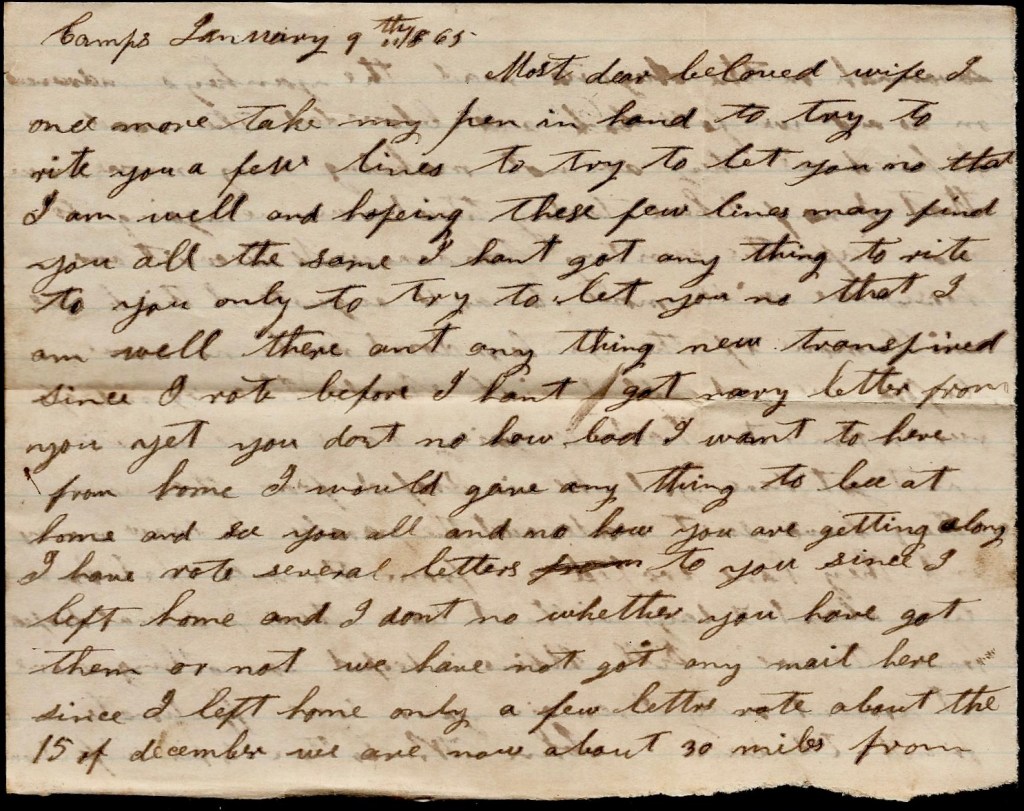 Camps January 9th 1865
Most dear beloved wife I
once more take my pen in hand to try to
rite you a few lines to try to let you no that
I am well and hopeing these few lines may find
you all the same I hant got any thing to rite
to you only to try to let you no that I
am well there ant any thing new transpired
since I rote before I hant got nary letter from
you yet you dont no how bad I want to here
from home I would gave any thing to bee at
home and se you all and no how you are getting along
I have rote several letters from to you since I
left home and I dont no whether you have got
them or not we have not got any mail here
since I left home only a few letters rote about the
15 of december we are now about 30 miles from